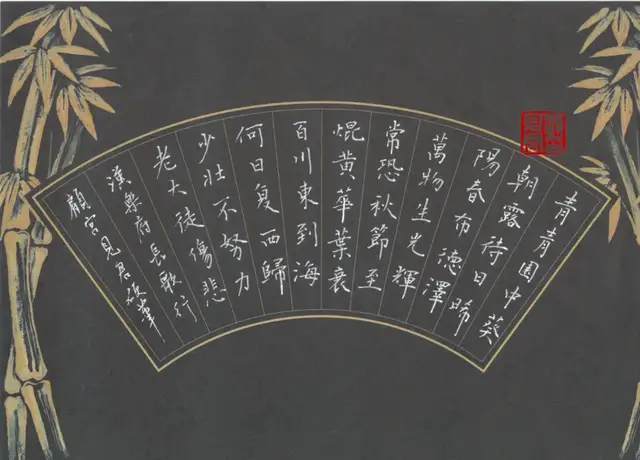 青青園中葵
朝露待日晞
陽春布德澤
萬物生光輝
常恐秋節至
焜黄華葉衰
百川東到海
何日复西歸
少壮不努力
老大徒傷悲
漢樂府長歌行
顧宫見君硬筆